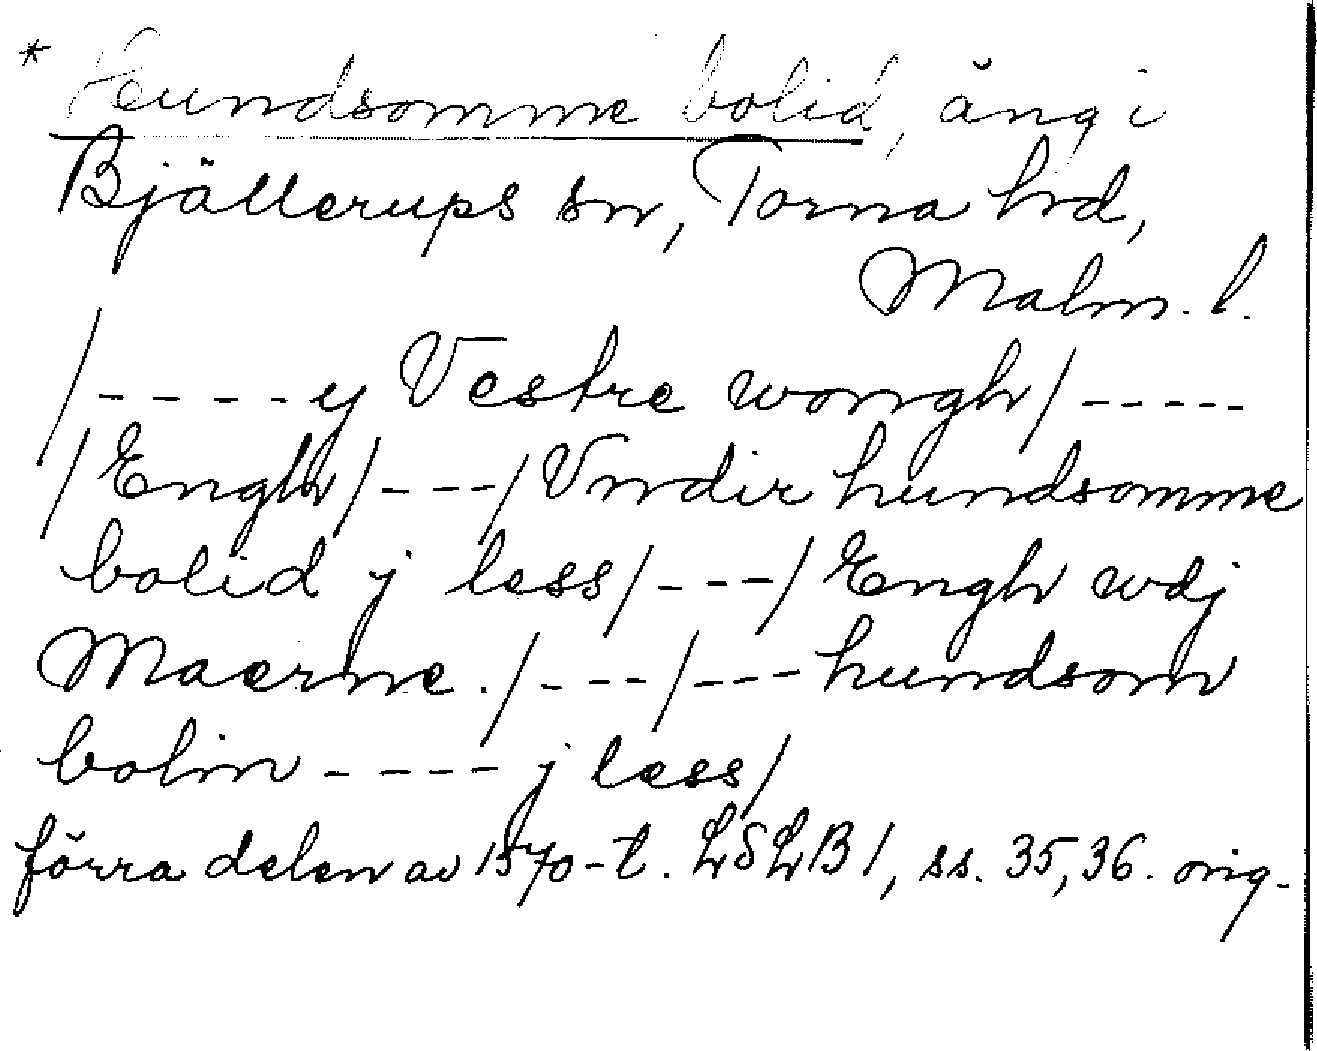 * Hundsomme bolid, äng i
Bjällerups sn, Torna hrd,
Malm. l.
/----y Vestre wongh/-----
/Engh/---/Vndir hundsomme
bolid j less/---/Engh wdj
Maerne./---/---hundsom
bolin ---- j less/
förra delen av 1570-t. LSLB 1, ss. 35, 36. orig.